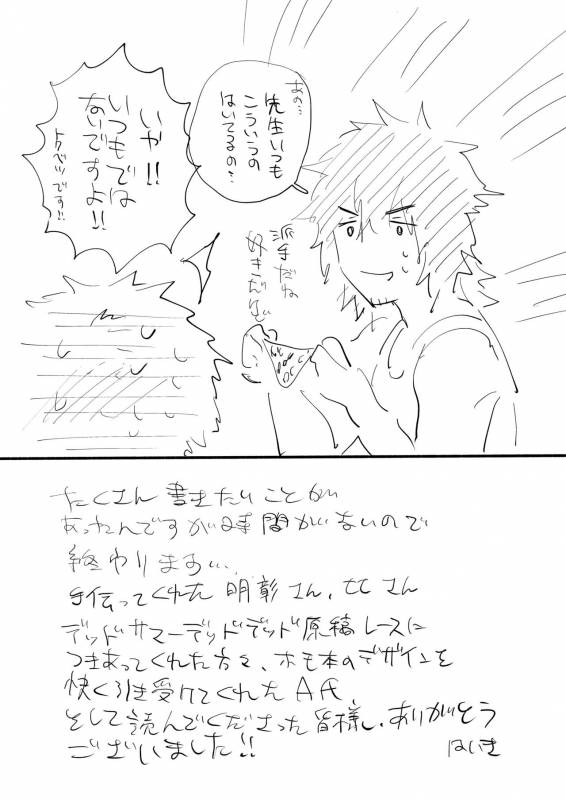 あの…
先生いつも
こういうの
はいてるの…
いや!!
いつもでは
ないですよ!!
トクベツです!!
派手だね
好きだけど
たくさん書きたいことが
あったんですが時間がないので
終わります…
手伝ってくれた明彰さん、
さん
デッドサマーデッドデッド原稿レースに
つきあってくれた方々、ホモ本のデザインを
快く引き受けてくれたA氏
そして読んでくださった皆様、ありがとう
ございました!!
はいき